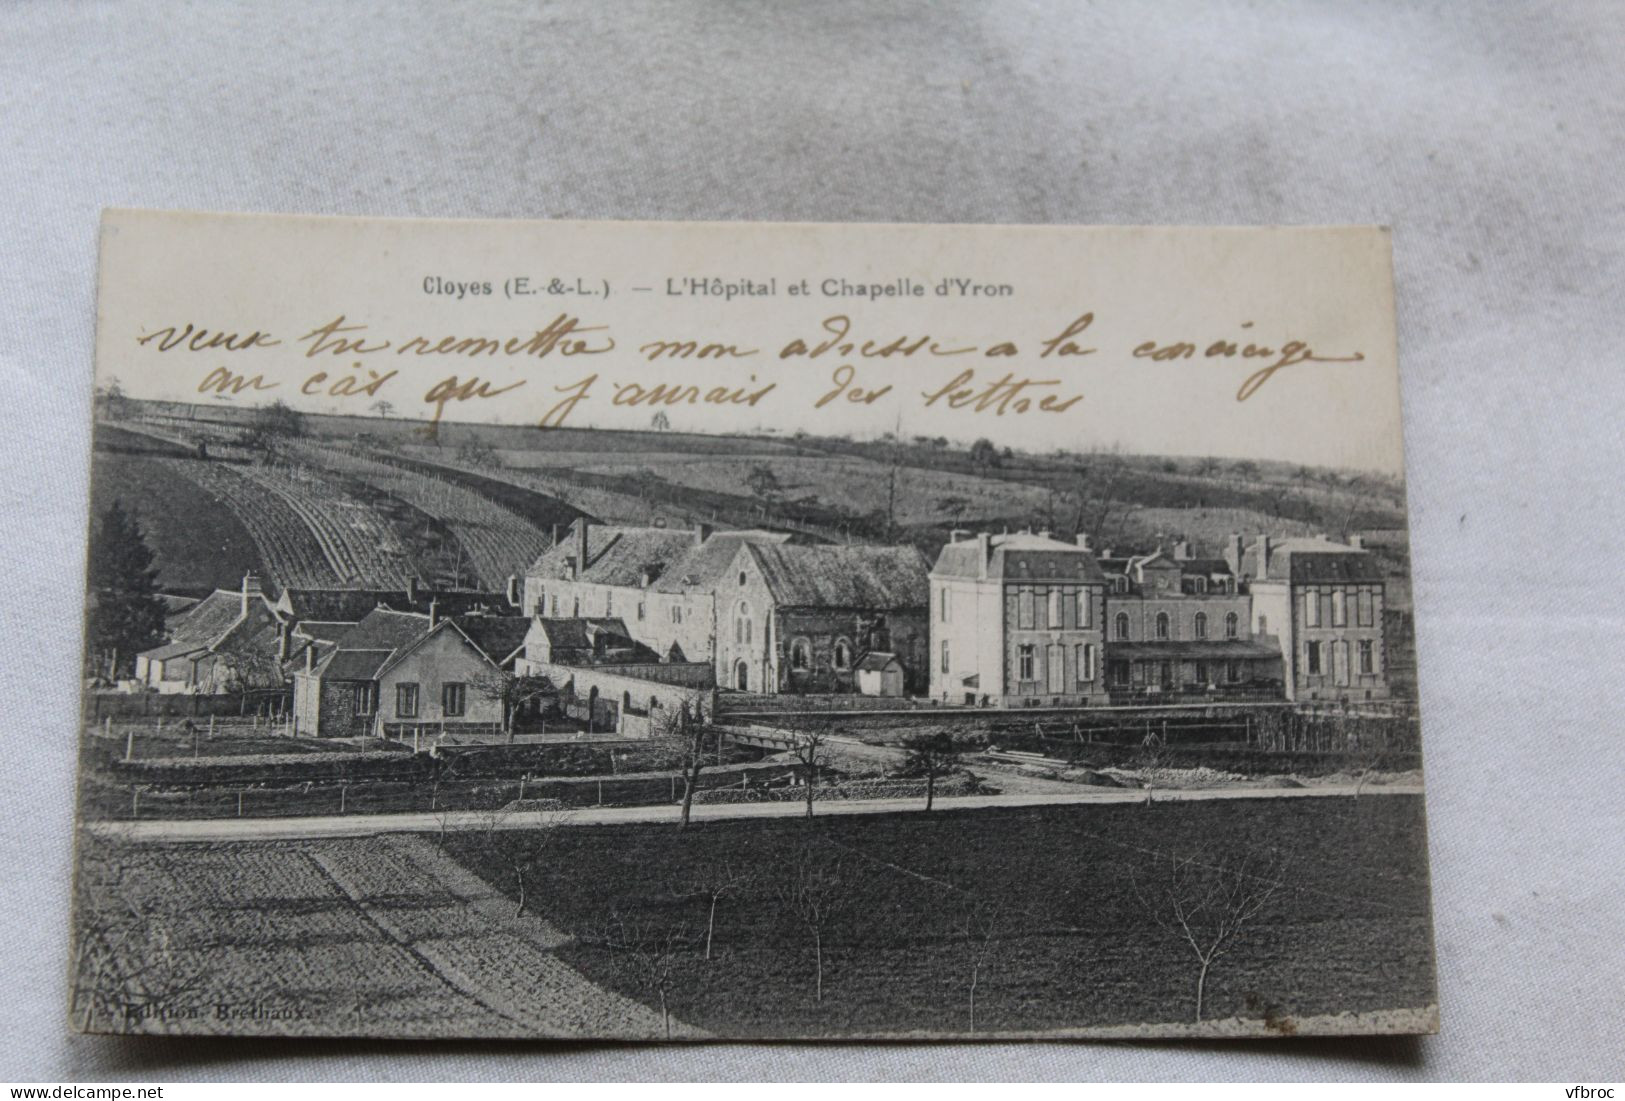 Cloyes (E.-&-L.) — L'Hôpital et Chapelle d'Yron
veux tu remettre mon adresse a la concierge
au cas ou j'aurais des lettres
Edition Brethaux.
vfbroc